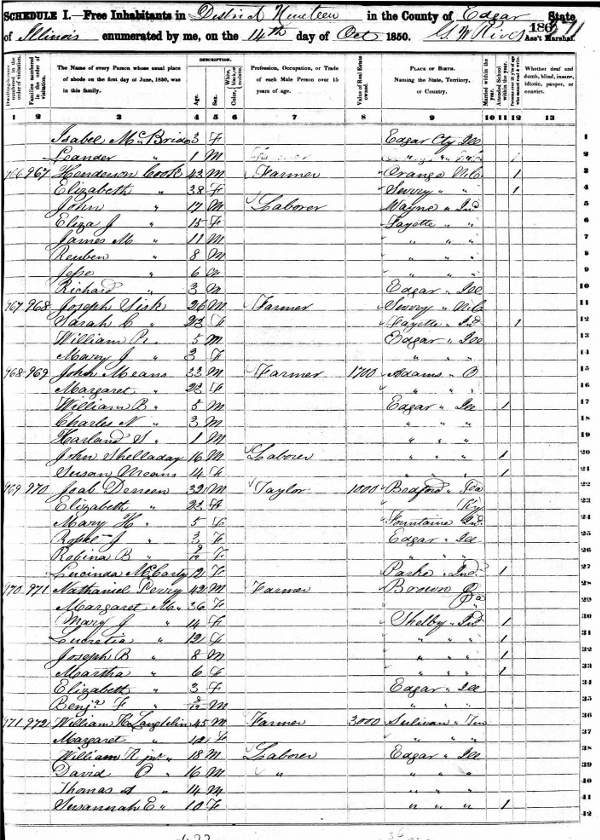 SCHEDULE I.—Free Inhabitants in District Nineteen in the County of Edgar State
of Illinois enumerated by me, on the 14th day of Oct 1850. Ass't Marshal.
Dwelling-houses numbered in the order of visitation.
Families numbered in the order of visitation.
The Name of every Person whose usual place of abode on the first day of June, 1850, was in this family.
DESCRIPTION.
Age.
Sex.
White, black, or mulatto. Color,
Profession, Occupation, or Trade of each Male Person over 15 years of age.
Value of Real Estate owned.
PLACE OF BIRTH.
Naming the State, Territory, or Country.
Married within the year.
Attended School within the year.
Whether deaf and dumb, blind, insane, idiotic, pauper, or convict.
1 2 3 4 5 6 7 8 9 10 11 12 13
Isabel McBride 3 F Edgar Cty Ill 1
Leander " 1 M 2
766 967 Henderson Cook 43 M Farmer Orange " N.C. 1 3
Elizabeth " 38 F Surry " " 1 4
John " 17 M Laborer Wayne " Ind 5
Eliza J " 15 F Fayette " " 6
James M " 11 M " " " 7
Reuben " 8 M " " " 8
Jesse " 6 M " " " 9
Richard " 3 M Edgar " Ill 10
767 968 Joseph Sisk 26 M Farmer Surry " N.C. 11
Sarah C " 23 F Fayette " Ind 1 12
William R. " 5 M Edgar " Ill 13
Mary J " 3 F " " " 14
768 969 John Means 33 M Farmer 1700 Adams " O 15
Margaret " 23 F " " " 16
William B. " 5 M Edgar " Ill 1 17
Charles N " 3 M " " " 18
Harland S. " 1 M " " " 19
John Shelladay 16 M Laborer " " " 1 20
Susan Means 14 F " " " 1 21
769 970 Joab Denson 32 M Taylor 1000 Bedford " 22
Elizabeth " 23 F Ky 23
Mary H. " 5 F Fountaine " Ind 24
J " 3 F Edgar " Ill 25
Robina B " F " " " 26
Lucinda McCarty 12 F Parke " Ind 1 27
770 971 Nathaniel Perry 42 M Farmer Brown 28
Margaret " 36 F Pa 29
Mary J " 14 F Shelby " Ind 1 30
Lucretia " 12 F " " " 1 31
Joseph B " 8 M " " " 1 32
Martha " 6 F " " " 1 33
Elizabeth " 3 F Edgar " Ill 34
Benja F " M " " " 35
771 972 William McLaughlin 45 M Farmer 3000 Sulivan " Ten 36
Margaret " 42 F " " " 37
William R jnr " 18 M Laborer Edgar " Ill 38
David O " 16 M " " " " 39
Thomas A " 14 M " " " 40
Susannah E " 10 F " " " 1 41
42